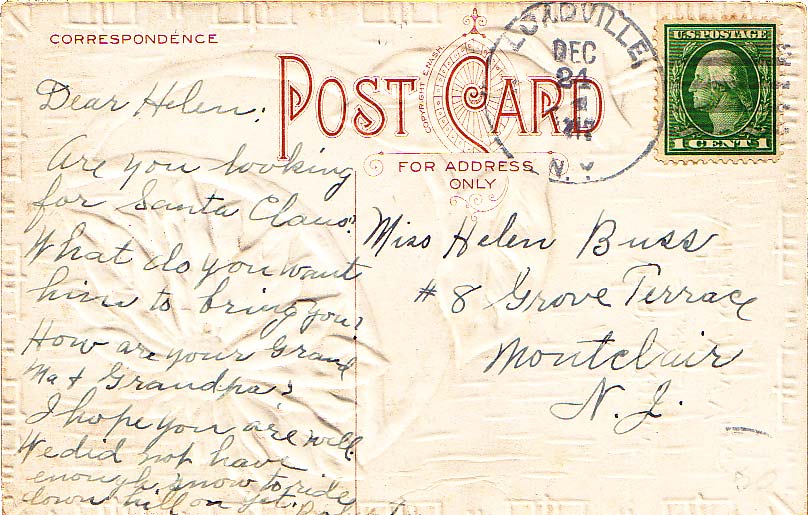 CORRESPONDENCE
POST CARD
COPYRIGHT E. NASH
FOR ADDRESS
ONLY
DEC
21
N.Y.
U.S. POSTAGE
1 CENT 1
Dear Helen:
Are you looking
for Santa Claus?
What do you want
him to bring you?
How are your Grand
Ma & Grandpa?
I hope you are well.
We did not have
enough snow to ride
down hill on yet.
Miss Helen Buss
# 8 Grove Terrace
Montclair
N. J.